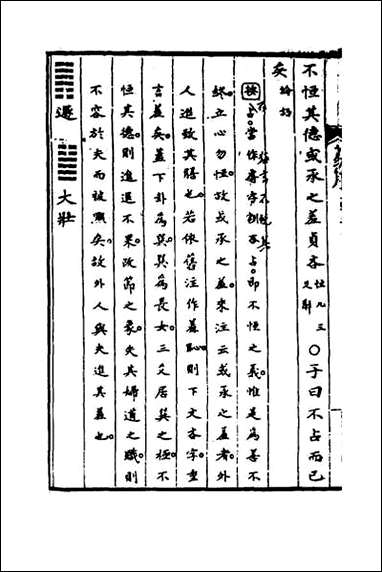 不恒其德或承之羞貞吝 恒九三爻辭 〇子曰不占而已
矣 論語
按 占當作 即不恒之義惟是為吝不
終立心勿恒故或承之羞來注云或承之羞者外
人進致其膳也若依舊注作羞恥則下文吝字重
言羞矣蓋下卦為巽巽為長女三爻居巽之極不
恒其德則進退不果改節之象失其婦道之職則
不容於夫而被黜矣故外人與夫進其羞也
遯 大壯